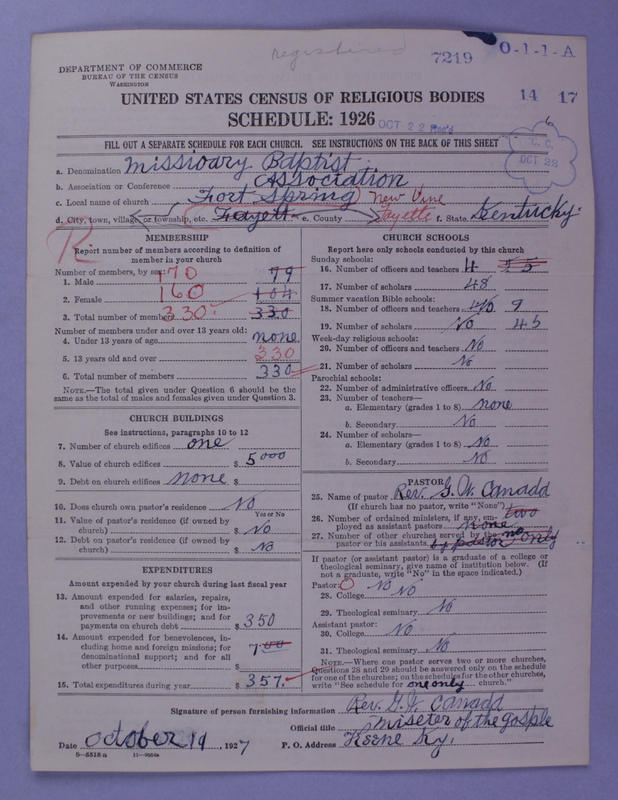 registered
7219 O-1-1-A
DEPARTMENT OF COMMERCE
BUREAU OF THE CENSUS
WASHINGTON
14 17
UNITED STATES CENSUS OF RELIGIOUS BODIES
SCHEDULE: 1926
OCT 22 Rec'd
FILL OUT A SEPARATE SCHEDULE FOR EACH CHURCH. SEE INSTRUCTIONS ON THE BACK OF THIS SHEET
OCT 28
a. Denomination Missioary Baptist
b. Association or Conference Association
c. Local name of church Fort Spring New Vine
d. City, town, village, or township, etc. Fayett e. County Fayette f. State Kentucky.
R
MEMBERSHIP
Report number of members according to definition of member in your church
Number of members, by sex:
1. Male 170 79
2. Female 160 104
3. Total number of members 330 330
Number of members under and over 13 years old:
4. Under 13 years of age none
5. 13 years old and over 330
6. Total number of members 330
NOTE.—The total given under Question 6 should be the
same as the total of males and females given under Question 3.
CHURCH BUILDINGS
See instructions, paragraphs 10 to 12
7. Number of church edifices one
8. Value of church edifices $ 5000
9. Debt on church edifices $ none
10. Does church own pastor's residence No
Yes or No
11. Value of pastor's residence (if owned by
church) $ No
12. Debt on pastor's residence (if owned by
church) $ No
EXPENDITURES
Amount expended by your church during last fiscal year
13. Amount expended for salaries, repairs,
and other running expenses; for im-
provements or new buildings; and for
payments on church debt $ 350
14. Amount expended for benevolences, in-
cluding home and foreign missions; for
denominational support; and for all
other purposes $ 700
15. Total expenditures during year $ 357.
CHURCH SCHOOLS
Report here only schools conducted by this church
Sunday schools:
16. Number of officers and teachers 4 55
17. Number of scholars 48
Summer vacation Bible schools:
18. Number of officers and teachers No 9
19. Number of scholars No 45
Week-day religious schools:
20. Number of officers and teachers No
21. Number of scholars No
Parochial schools:
22. Number of administrative officers No
23. Number of teachers—
a. Elementary (grades 1 to 8) none
b. Secondary No
24. Number of scholars—
a. Elementary (grades 1 to 8) No
b. Secondary No
PASTOR
25. Name of pastor Rev. G. W. Canadd
(If church has no pastor, write "None")
26. Number of ordained ministers, if any, em- two
ployed as assistant pastors none
27. Number of other churches served by the no
pastor or his assistants by pastor only
If pastor (or assistant pastor) is a graduate of a college or
theological seminary, give name of institution below. (If
not a graduate, write "No" in the space indicated.)
Pastor: No
28. College No
29. Theological seminary No
Assistant pastor:
30. College No
31. Theological seminary No
NOTE.—Where one pastor serves two or more churches,
Questions 28 and 29 should be answered only on the schedule
for one of the churches; on the schedules for the other churches,
write "See schedule for one only church."
Signature of person furnishing information Rev. G. W. Canadd
Official title miseter of the gosple
Date October 19, 1927 P. O. Address Keene Ky.
8—5518a 11—9664a